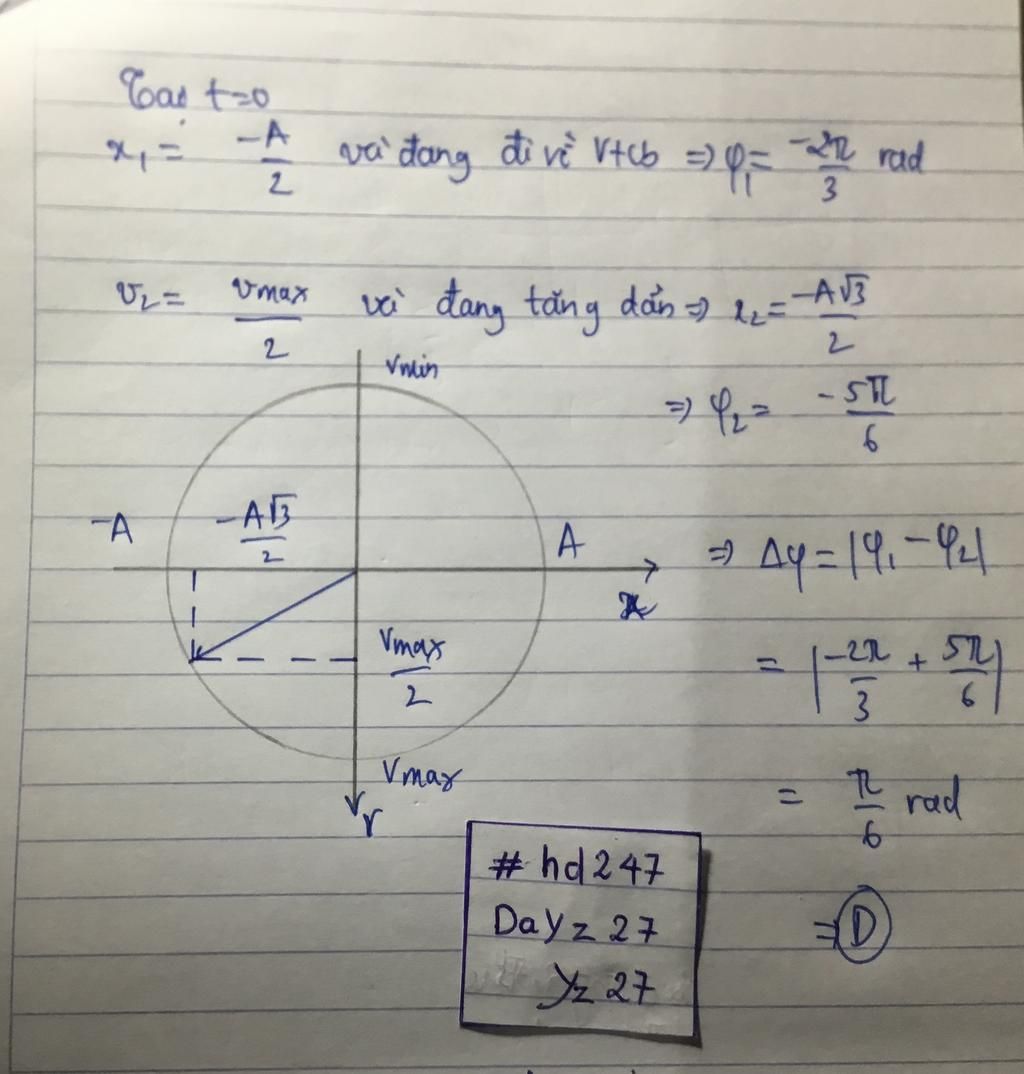 Tại t=0
x₁ = -A/2 và đang đi về Vtcb ⇒ φ₁ = -2π/3 rad
v₂ = vmax/2 và đang tăng dần ⇒ x₂ = -A√3/2
⇒ φ₂ = -5π/6
Vmin
-A
-A√3/2
A
x
Vmax/2
Vmax
v
⇒ Δφ = |φ₁ - φ₂|
= |-2π/3 + 5π/6|
= π/6 rad
⇒ D
# hd247
DaYz 27
Yz 27